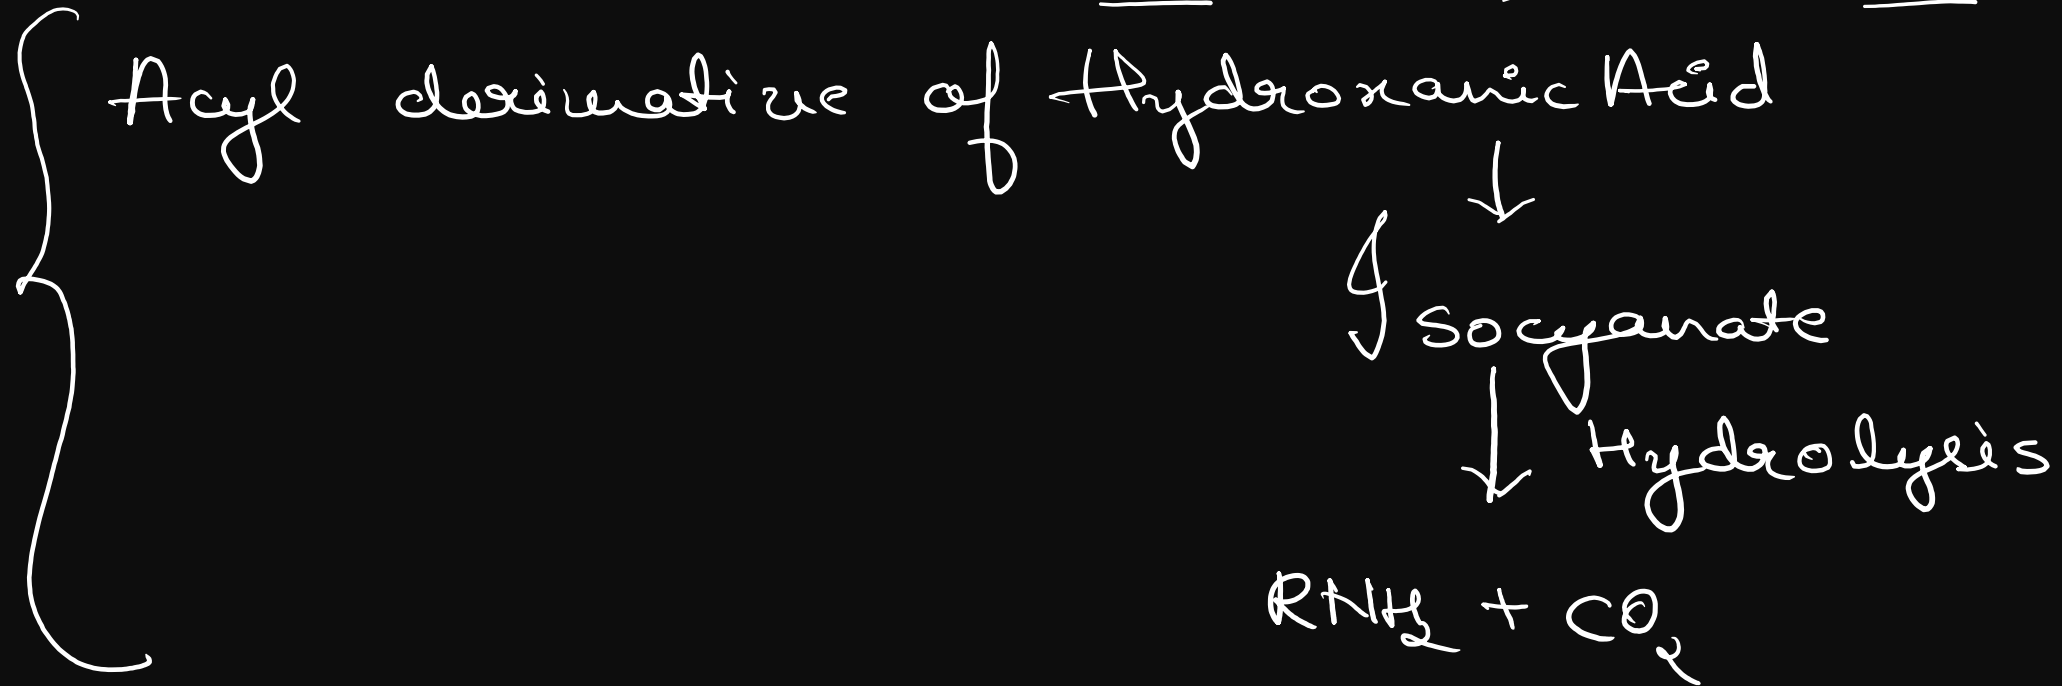 Acyl derivative of Hydroxamic Acid
↓
Isocyanate
↓ Hydrolysis
RNH₂ + CO₂